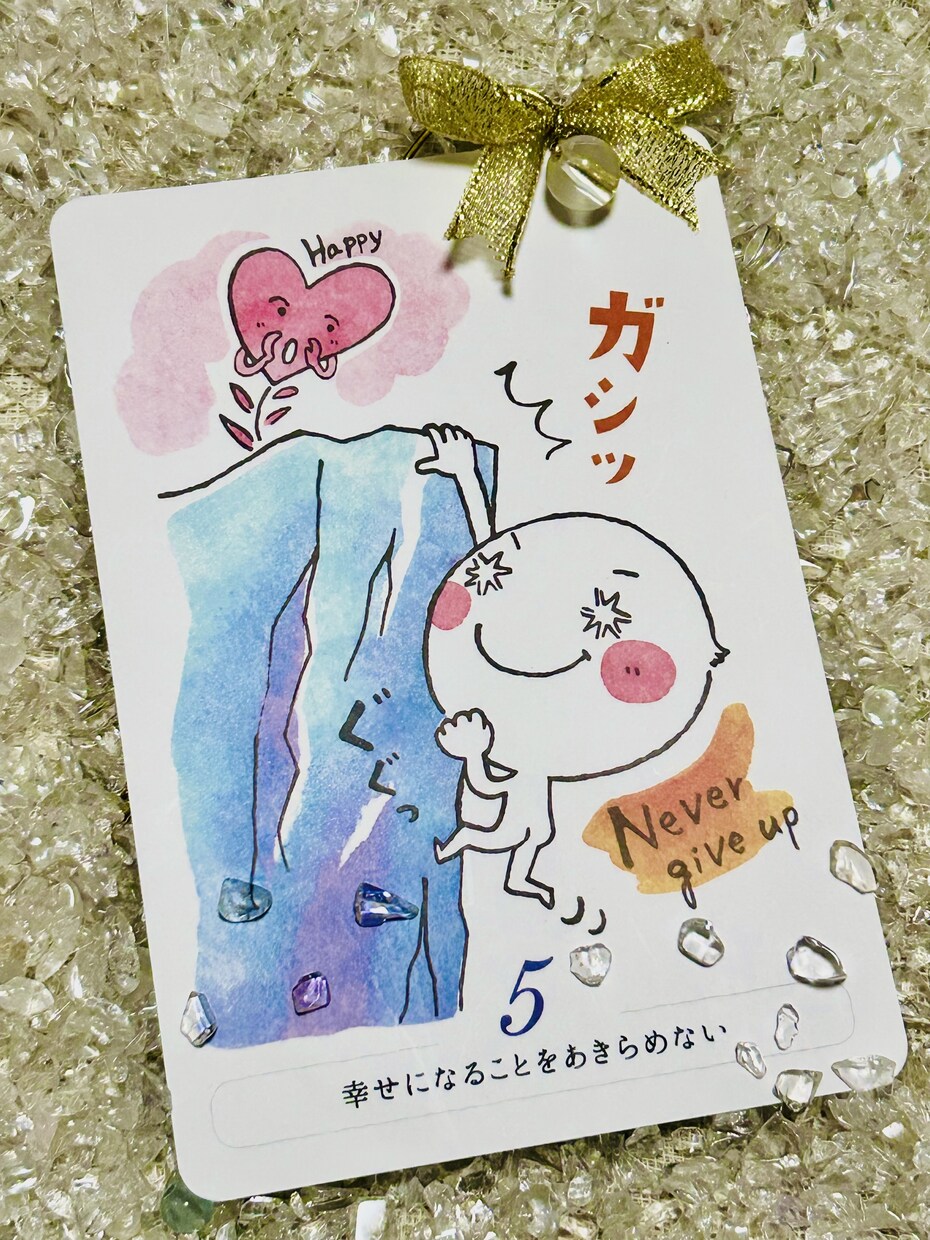 Happy
ガシッ
ぐぐっ
Never
give up
5
幸せになることをあきらめない